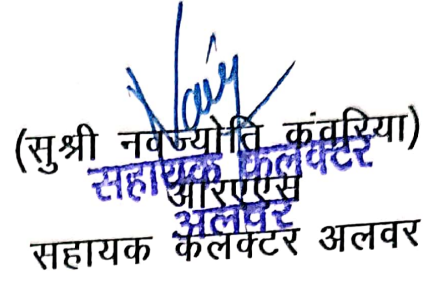 (सुश्री नवज्योति कंवरिया)
सहायक कलक्टर
आरएएस
अलवर
सहायक कलक्टर अलवर